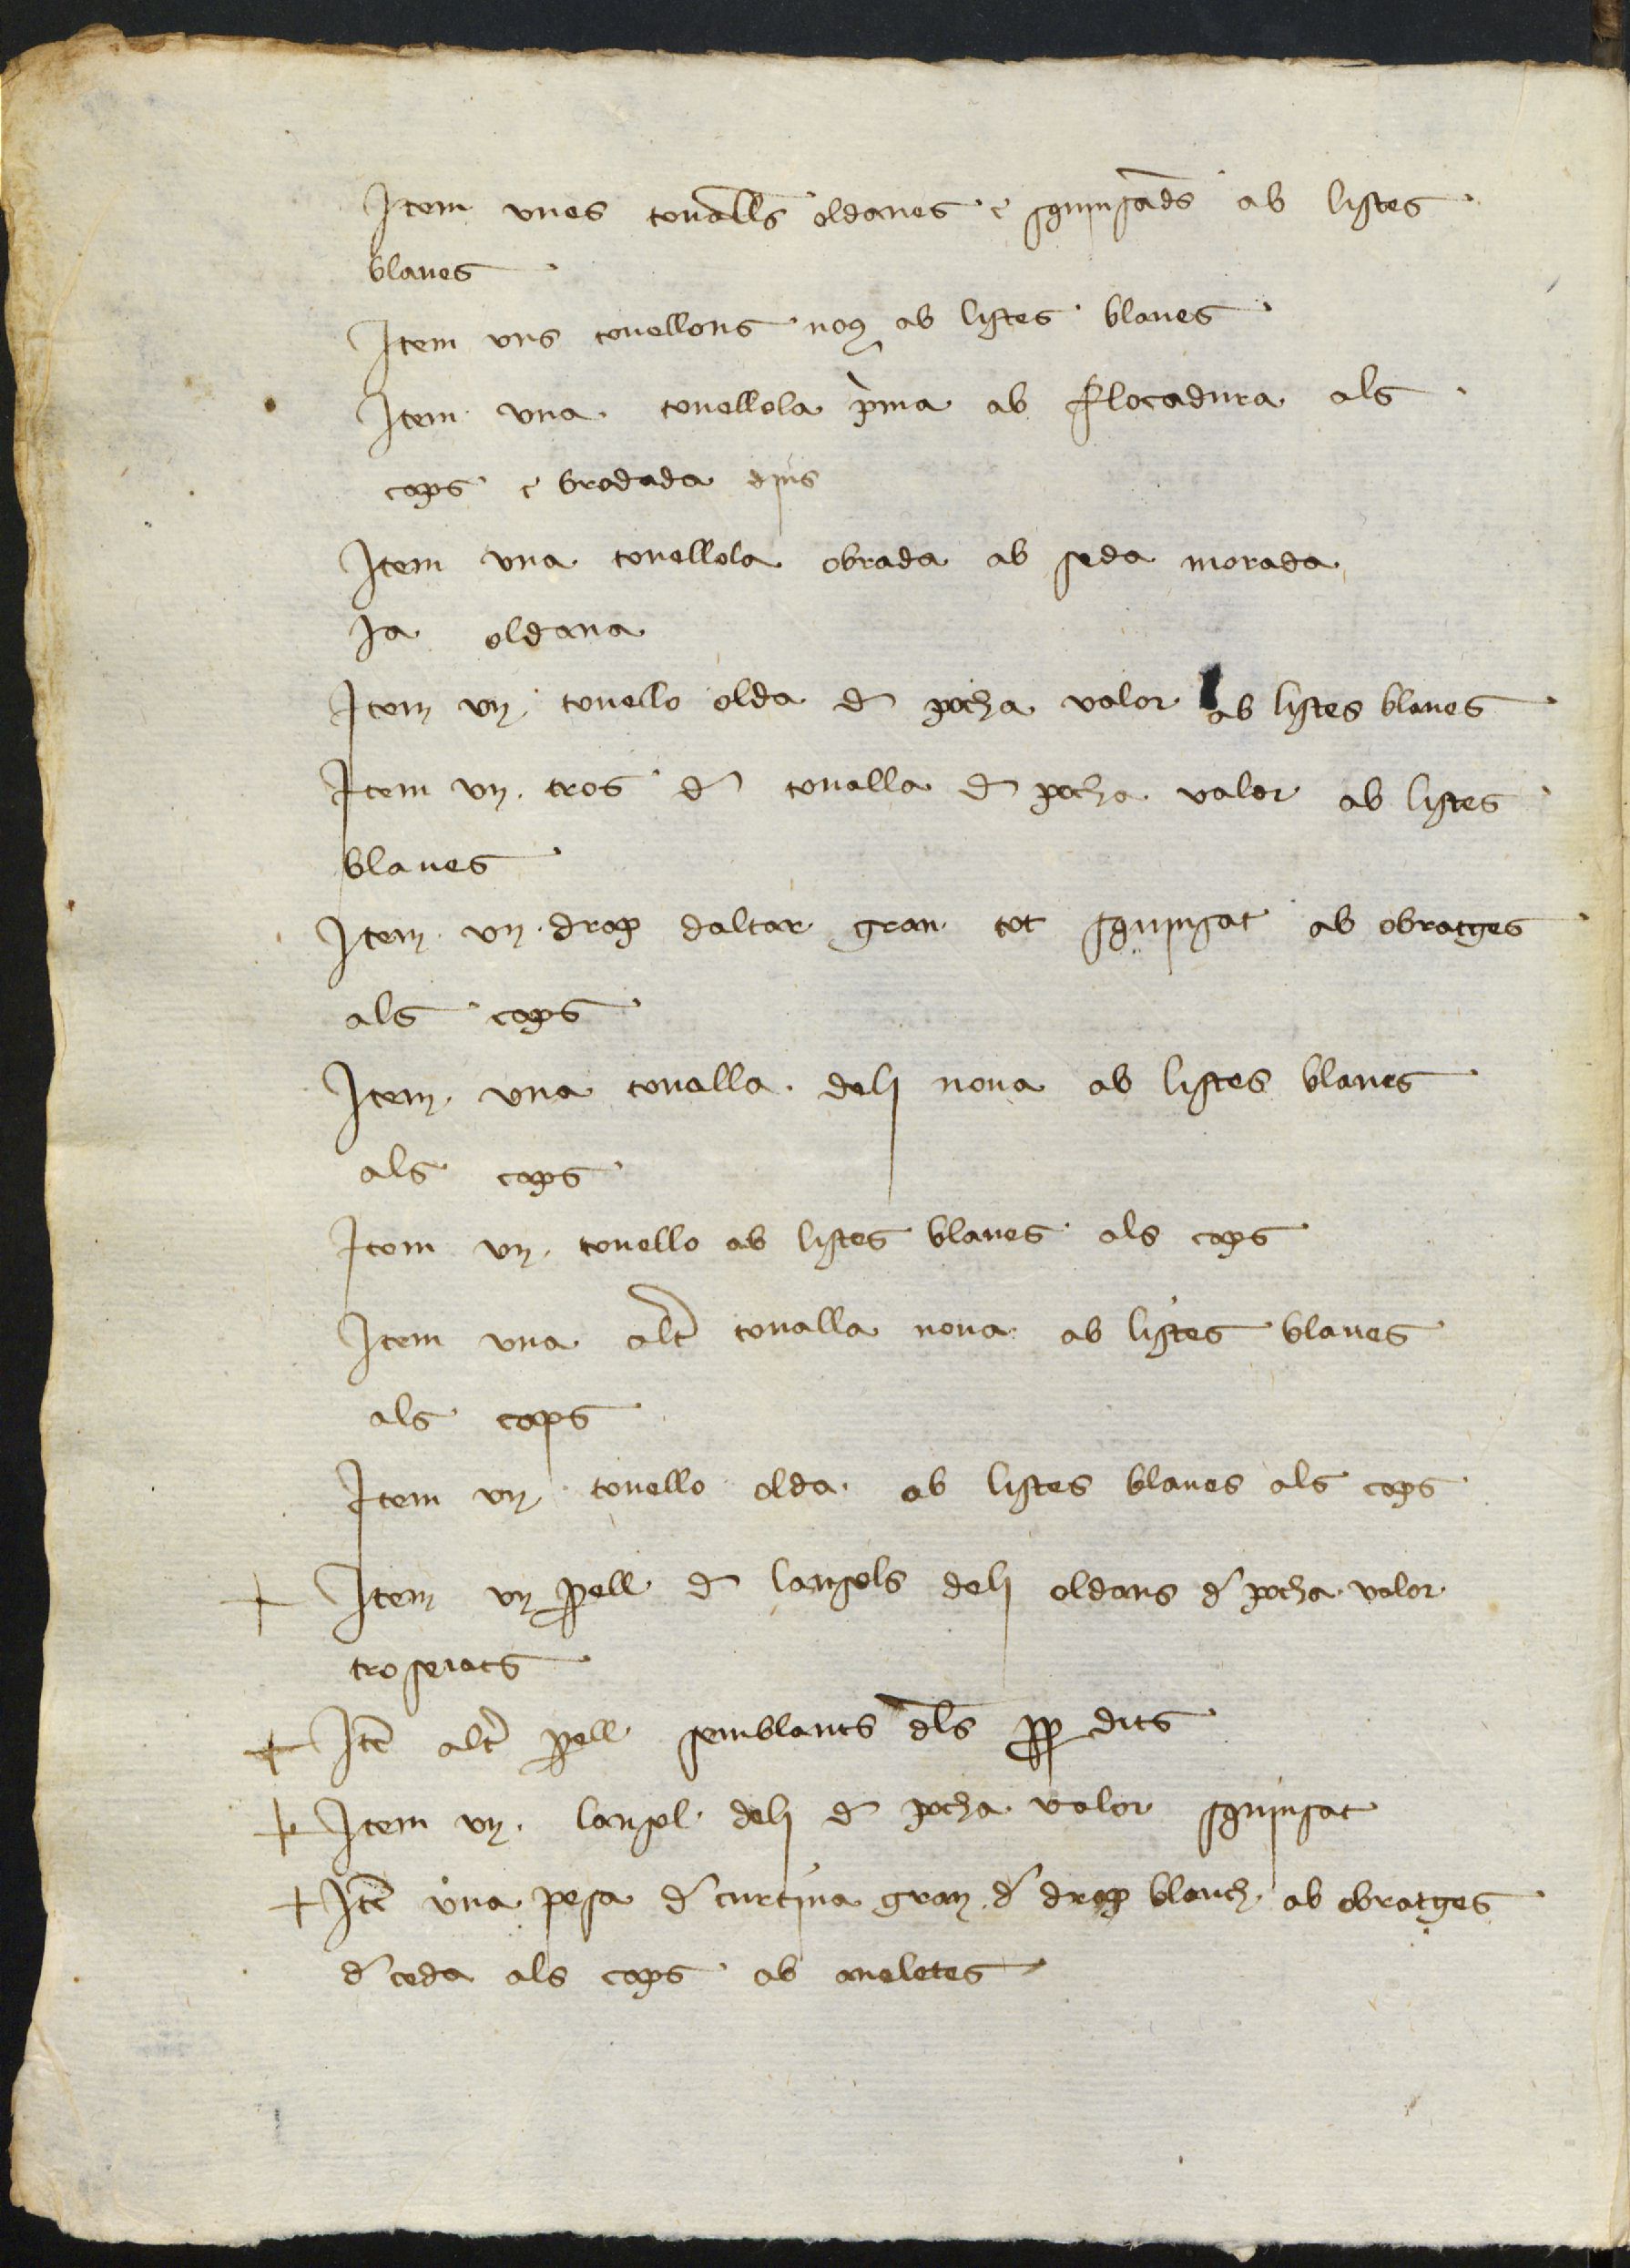 Item unes tovalls oldanes e sguinsads ab listes
blaves
Item uns tovellons nous ab listes blaves
Item una tovellola prima ab flocadura als
caps e brodada
Item una tovellola obrada ab seda morada
ja oldana
Item un tovello olda de pocha valor ab listes blaves
Item un tros de tovalla de pocha valor ab listes
blaves
Item un drap daltar gran tot sguinsat ab obratges
als caps
Item una tovalla deli nova ab listes blaves
als caps
Item un tovello ab listes blaves als caps
Item una altr tovalla nova ab listes blaves
als caps
Item un tovello olda ab listes blaves als caps
+ Item un parell de lansols deli oldans de pocha valor
trosejats
+ Item altr parell semblants dels prop dits
+ Item un lansol deli de pocha valor sguinsat
+ Item una pesa de curtina gran de drap blanch ab obratges
de ceda als caps ab aneletes